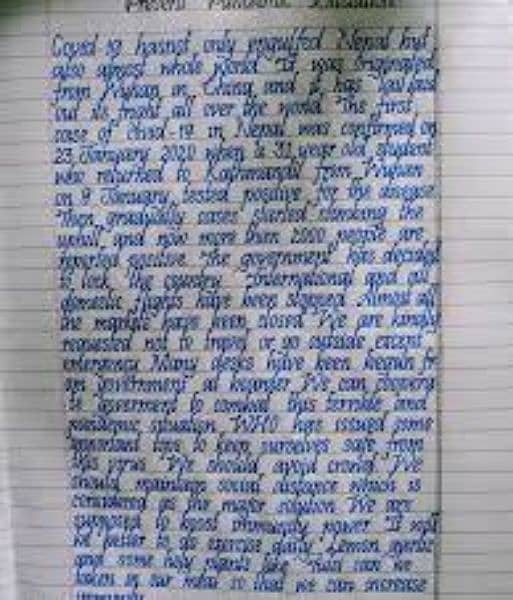 Present Pandemic Situation
Covid 19 hasnot only engulfed Nepal but
also almost whole world. It was originated
from Wuhan in China and it has
out its fright all over the world. The first
case of Covid-19 in Nepal was confirmed on
23 January 2020 when a 31 year old student
who returned to Kathmandu from Wuhan
on 9 January tested positive for the disease
Then gradually cases started climbing the
and now more then 2000 people are
reported positive. The government has decided
to lock the country. International and all
domestic flights have been stopped. Almost all
the markets have been closed. We are kindly
requested not to travel or go outside except
emergency. Many desks have been
government We can
to goverment to combat this terrible and
pandemic situation. WHO has issued some
important tips to keep ourselves safe from
this virus. We should avoid crowd. We
should maintain social distance which is
considered as the major solution. We are
supposed to boost immunity power. It
be better to do exercise daily. Lemon
and some holy plants like can be
taken in our meal so that we can increase
immunity